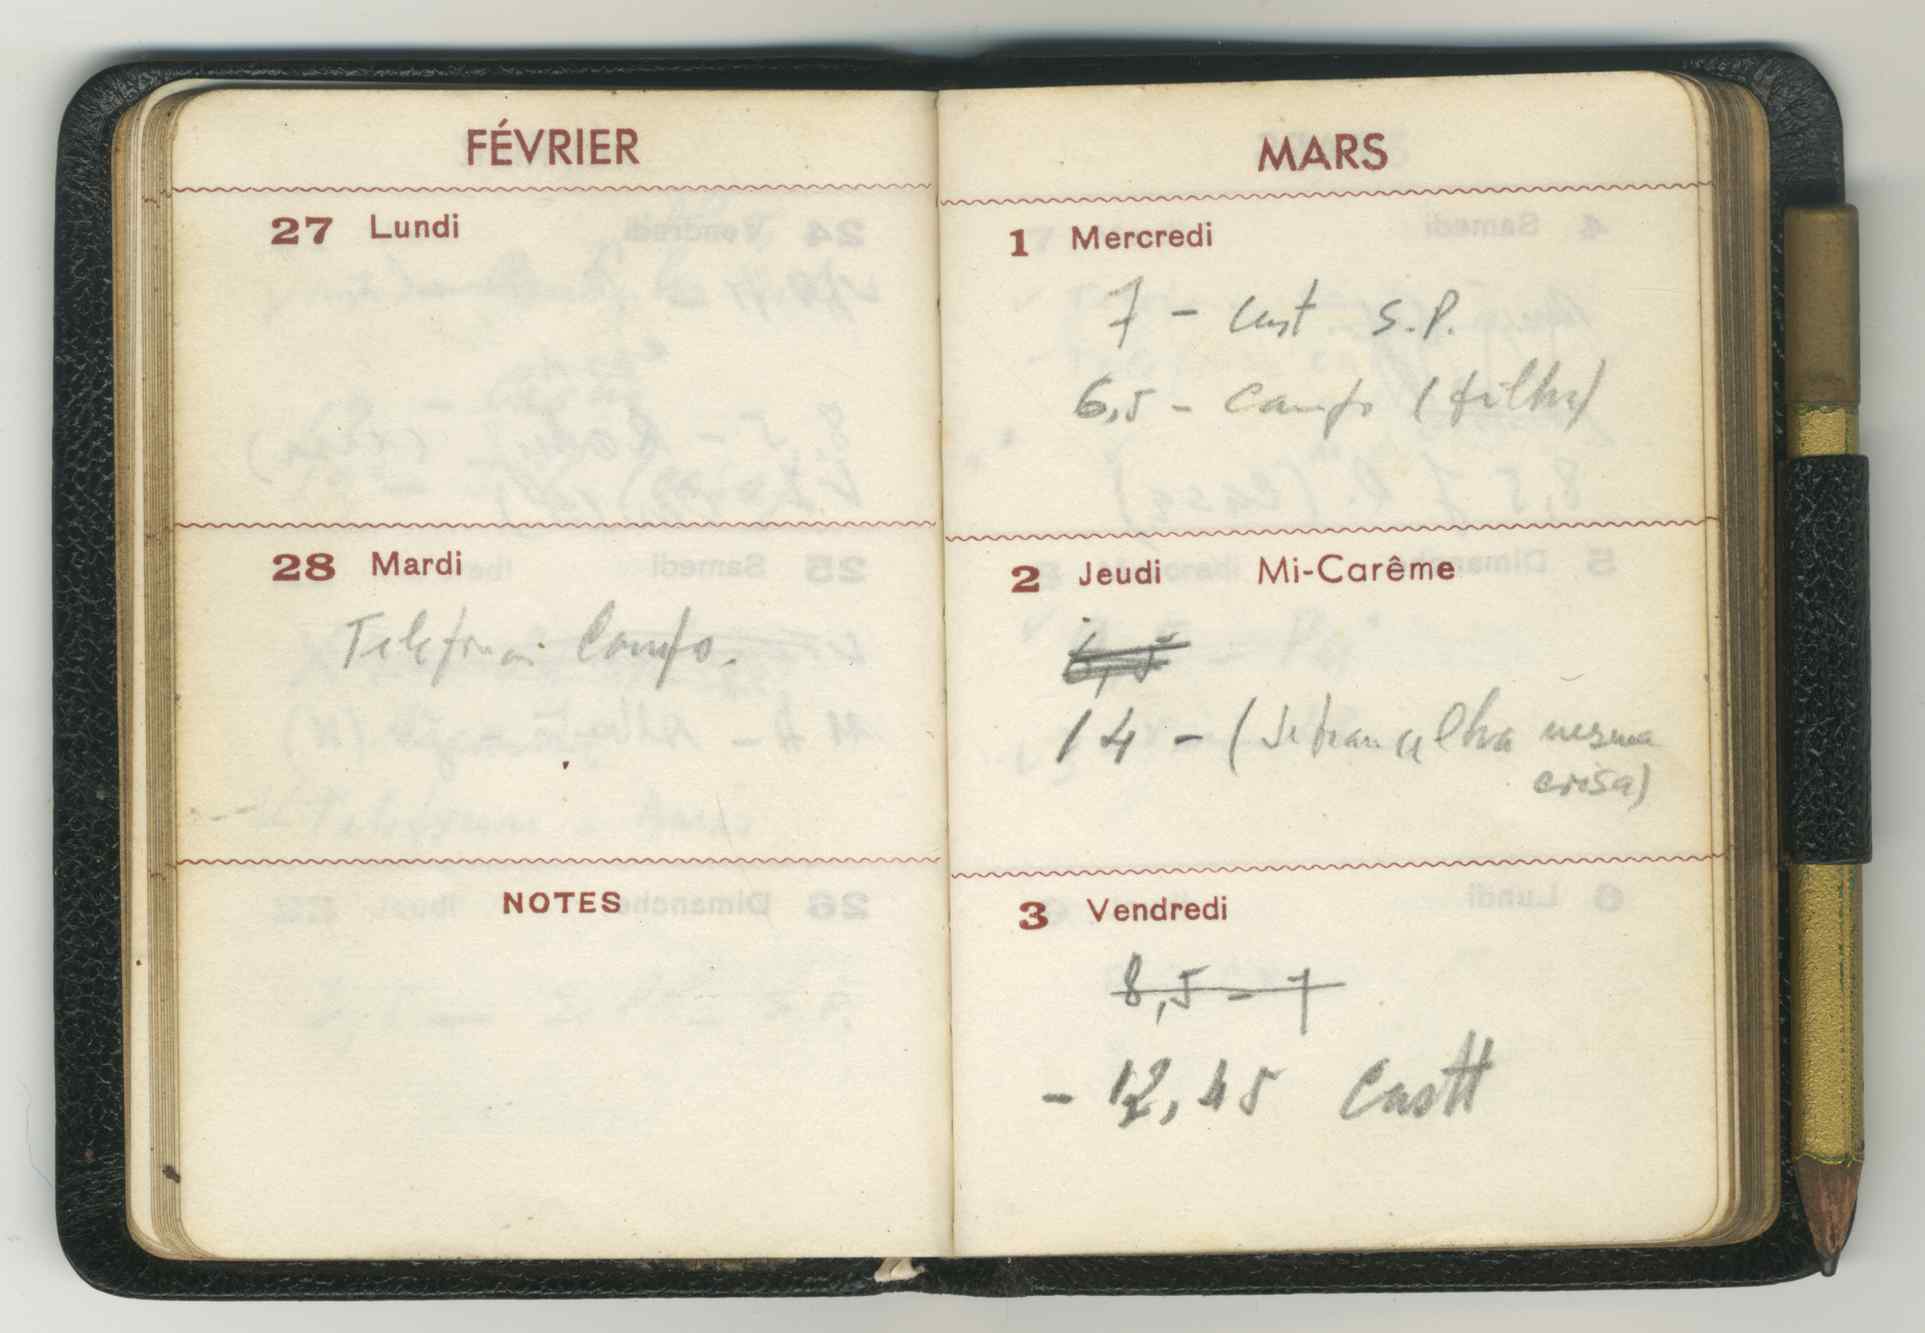 FÉVRIER
27 Lundi
28 Mardi
Campo.
NOTES
MARS
1 Mercredi
7 - Cast S.P.
6,5 - Campo (filha)
2 Jeudi Mi-Carême
6,5
14 - ( mesma
8,5 - 7
3 Vendredi
- 12,45 Castt